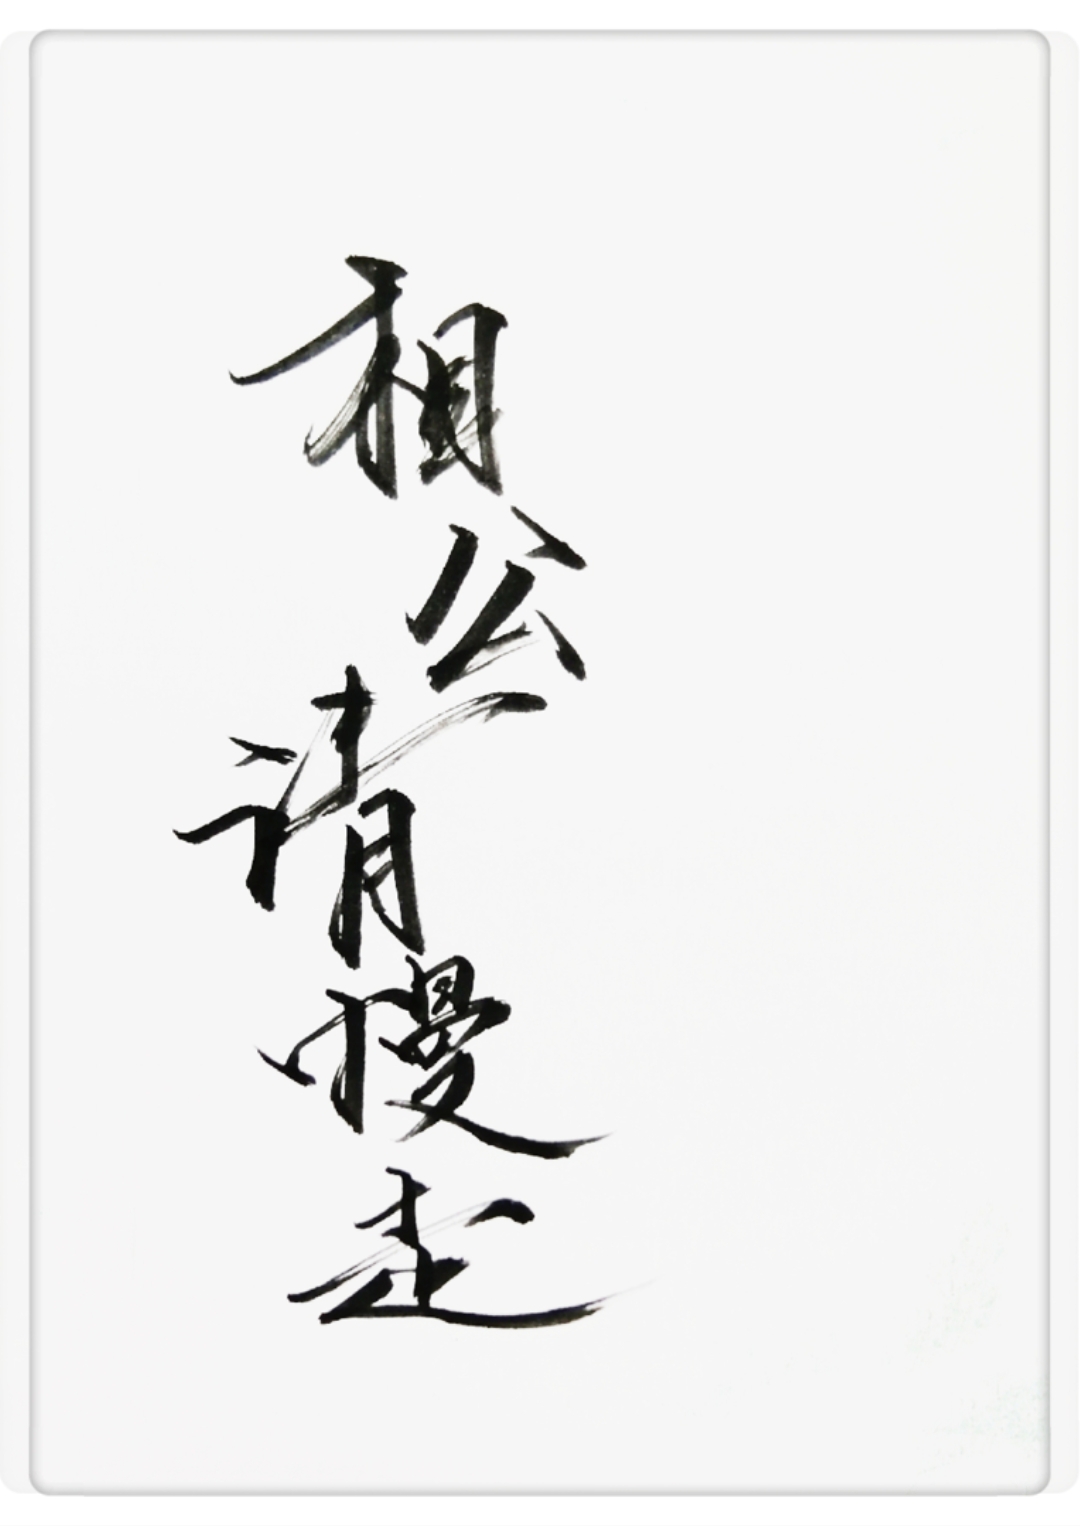 相公请慢走